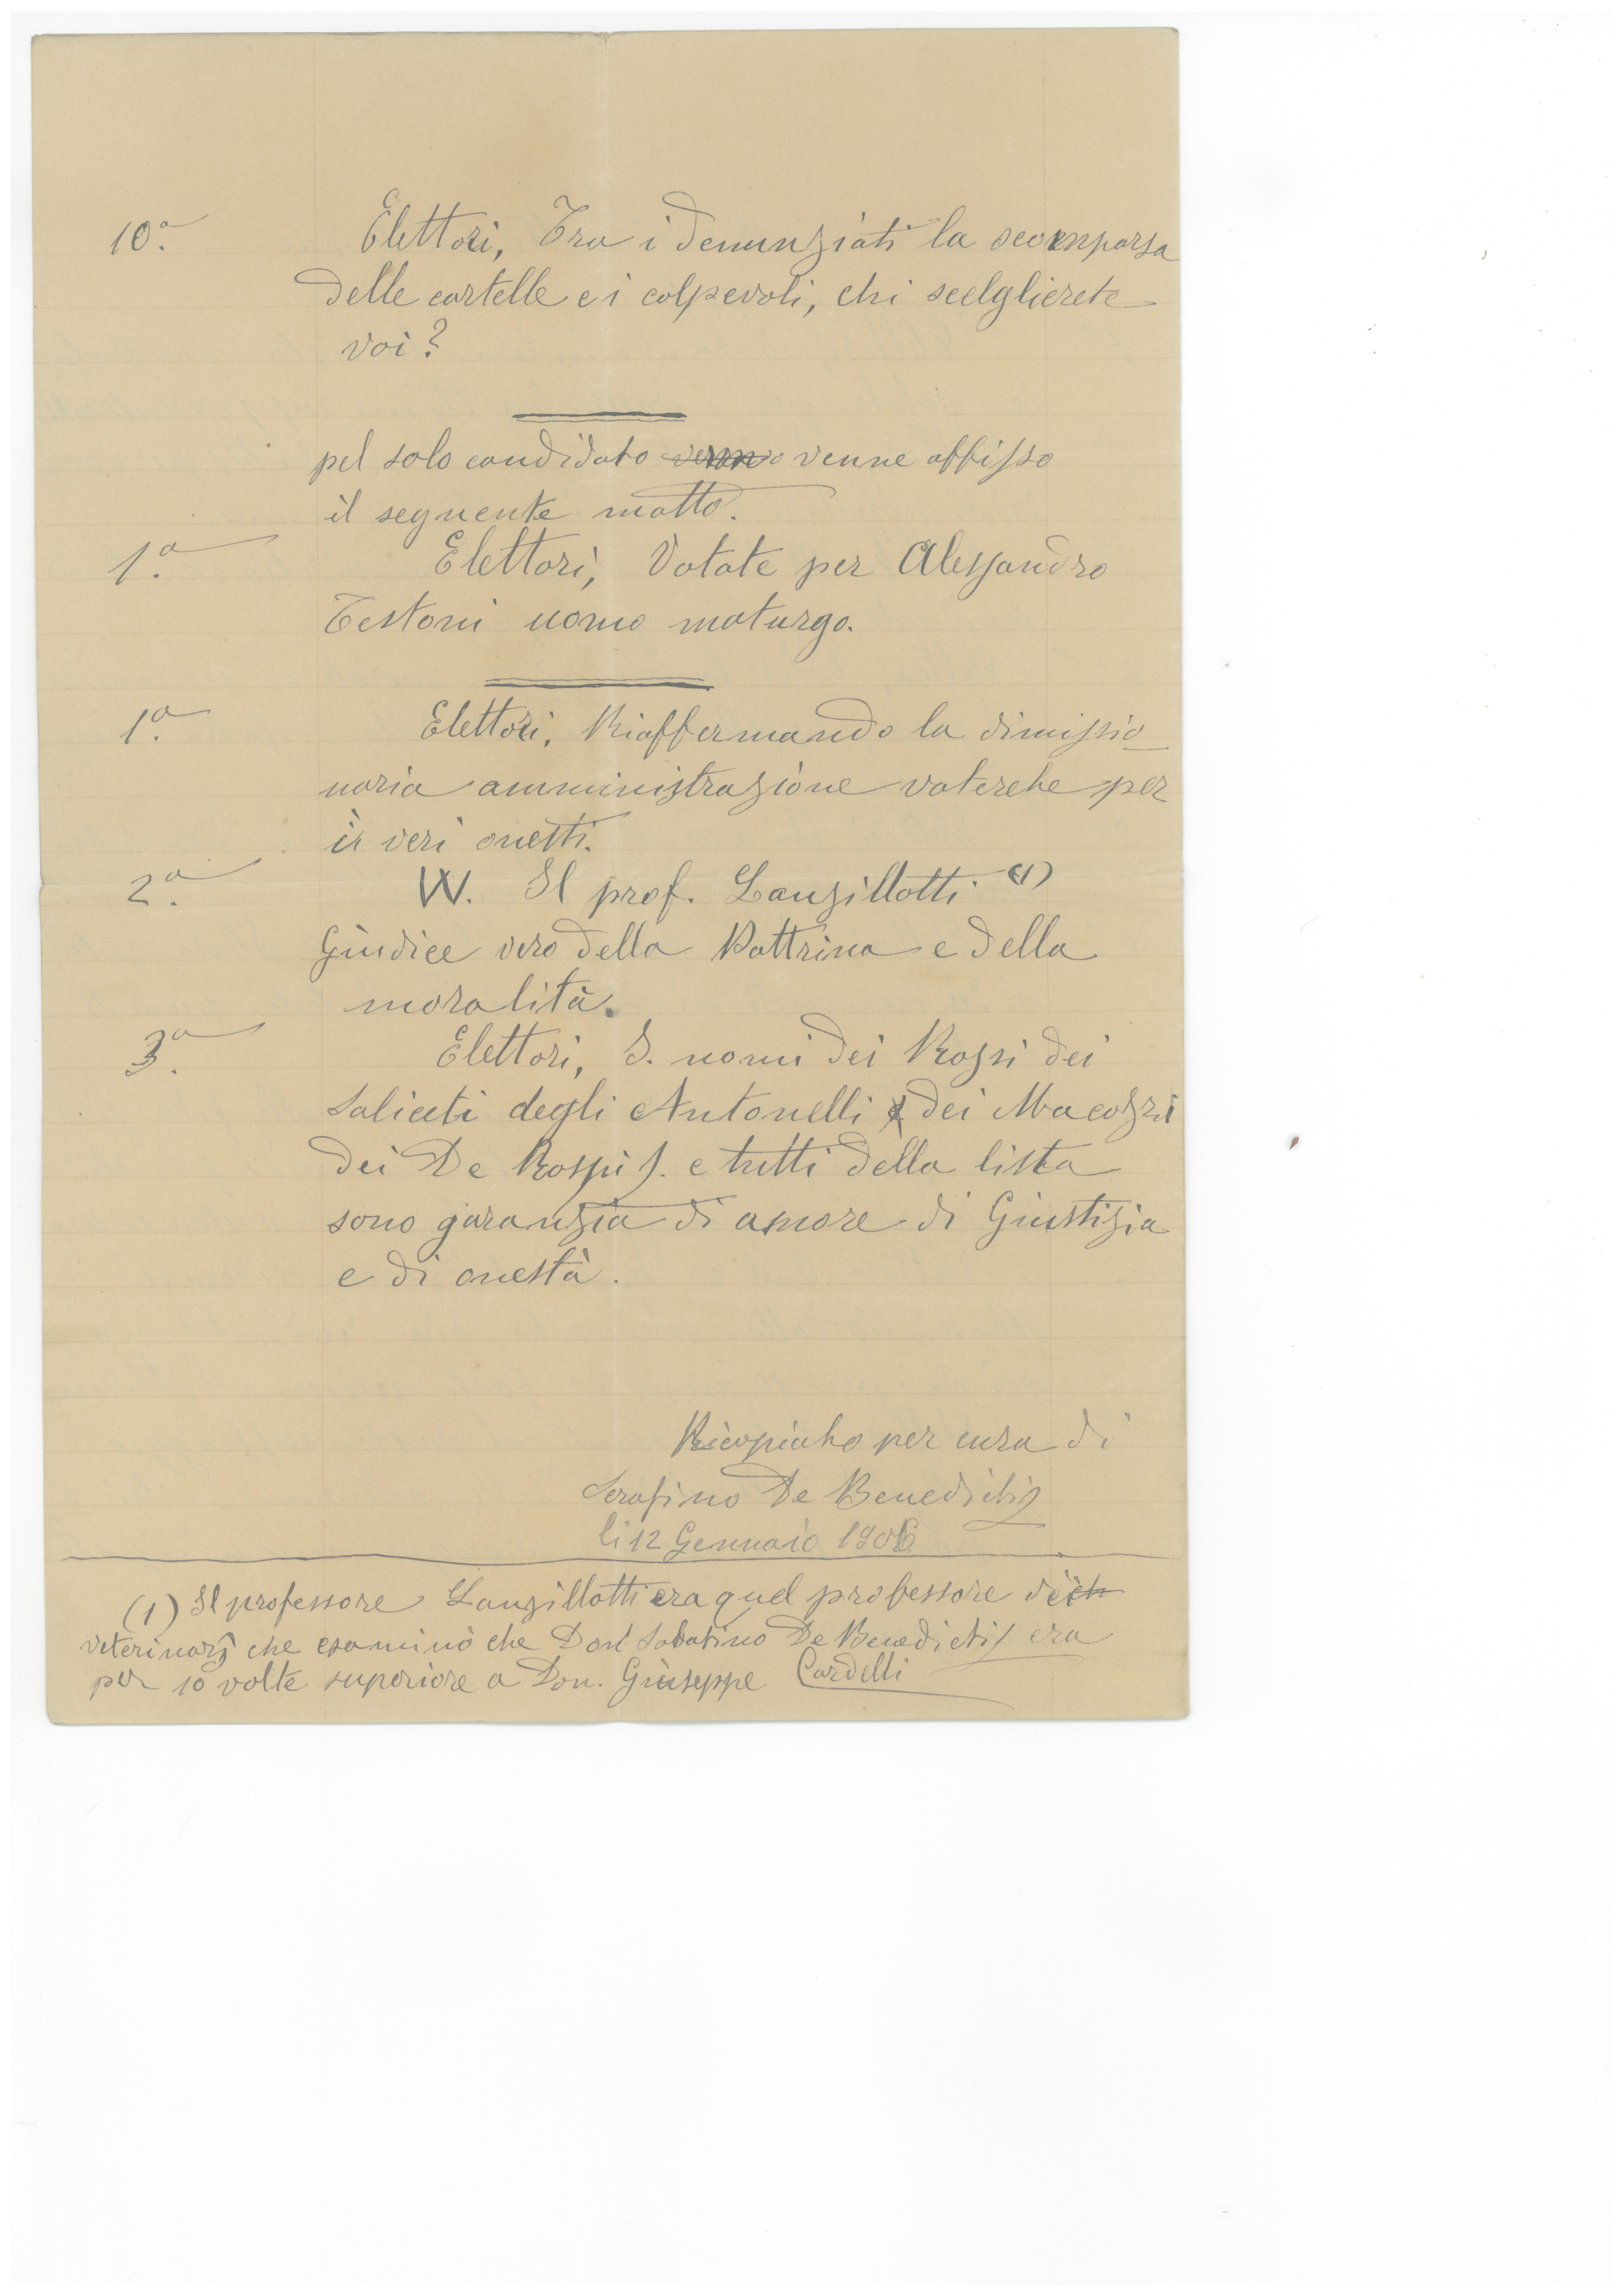 10.a Elettori, Tra i denunziati la scomparsa
delle cartelle e i colpevoli, chi scelglierete
voi?
pel solo candidato venne affisso
il seguente motto.
1.a Elettori, Votate per Alessandro
Testoni uomo maturgo.
1.a Elettori, Riaffermando la dimissio
naria amministrazione voterete per
i veri onesti.
2.a W. Il prof. Lanzillotti (1)
Giudice vero della Dottrina e della
moralità.
3.a Elettori, I. nomi dei Rossi dei
Saliceti degli Antonelli dei Macozzi
dei De Rossi S. e tutti della lista
sono garanzia di amore di Giustizia
e di onestà.
Ricopiato per cura di
Serafino De Benedictis
li 12 Gennaio 1906
(1) Il professore Lanzillotti era quel professore di
veterinaria che esaminò che Don Sabatino De Benedictis era
per 10 volte superiore a Don. Giuseppe Cardelli